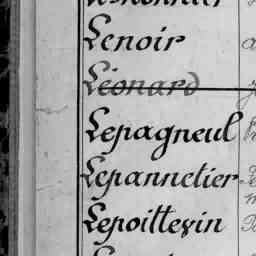 Lenoir
Léonard
Lepagneul
Lepannetier
Lepoittevin